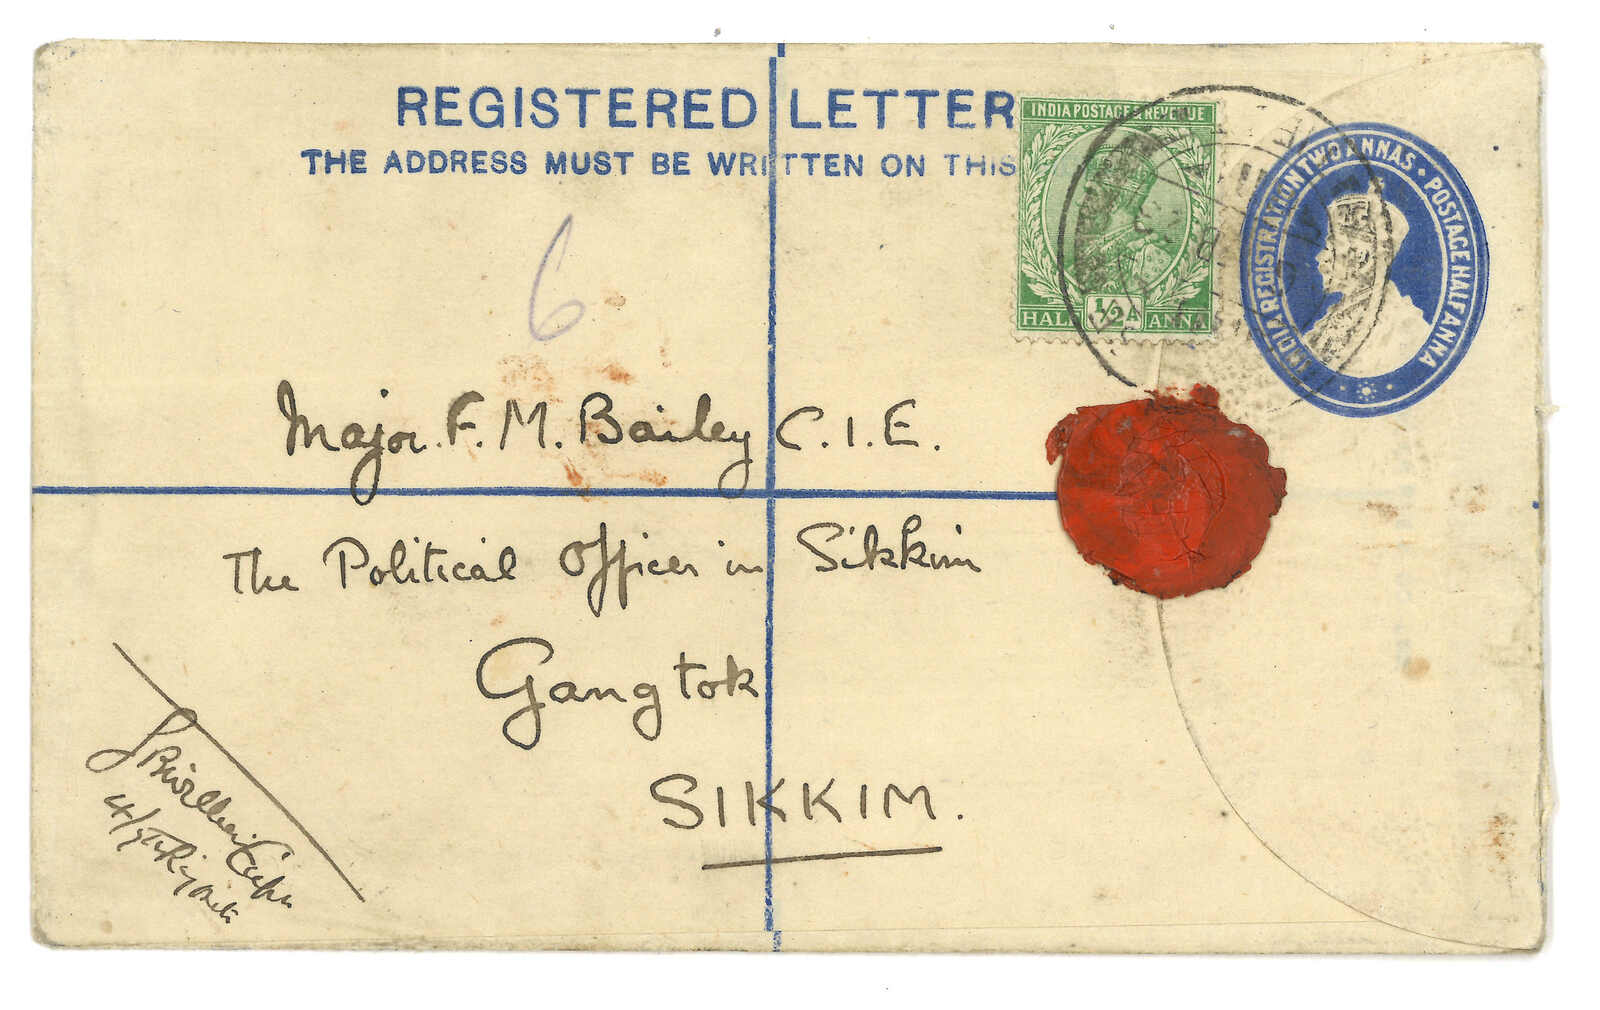 REGISTERED LETTER
THE ADDRESS MUST BE WRITTEN ON THIS
INDIA POSTAGE & REVENUE
HALF ½A ANNA
INDIA REGISTRATION TWO ANNAS · POSTAGE HALF ANNA
6
Major F. M. Bailey C.I.E.
The Political Officer in Sikkim
Gangtok
SIKKIM.